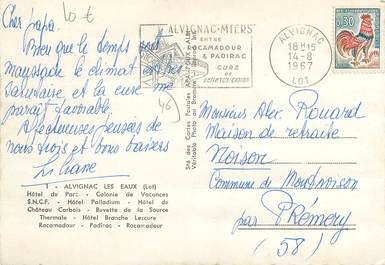 10 €
Cher papa.
Bien que le temps soit
maussade le climat est très
salutaire et la cure me
paraît favorable.
Affectueuses pensées de
nous trois et bons baisers
Liliane
46
ALVIGNAC-MIERS
ENTRE
ROCAMADOUR
& PADIRAC
CURE
DE
DÉSINTOXICATION
ALVIGNAC
18H15
14-8
1967
LOT
0,30
Monsieur Alex. Rouard
Maison de retraite
Noison
Commune de Montenoison
par PRÉMERY
(58)
1 - ALVIGNAC LES EAUX (Lot)
Hôtel du Parc - Colonie de Vacances
S.N.C.F. - Hôtel Palladium - Hôtel du
Château Carbois - Buvette de la Source
Thermale - Hôtel Branche Lescure
Rocamadour - Padirac - Rocamadour